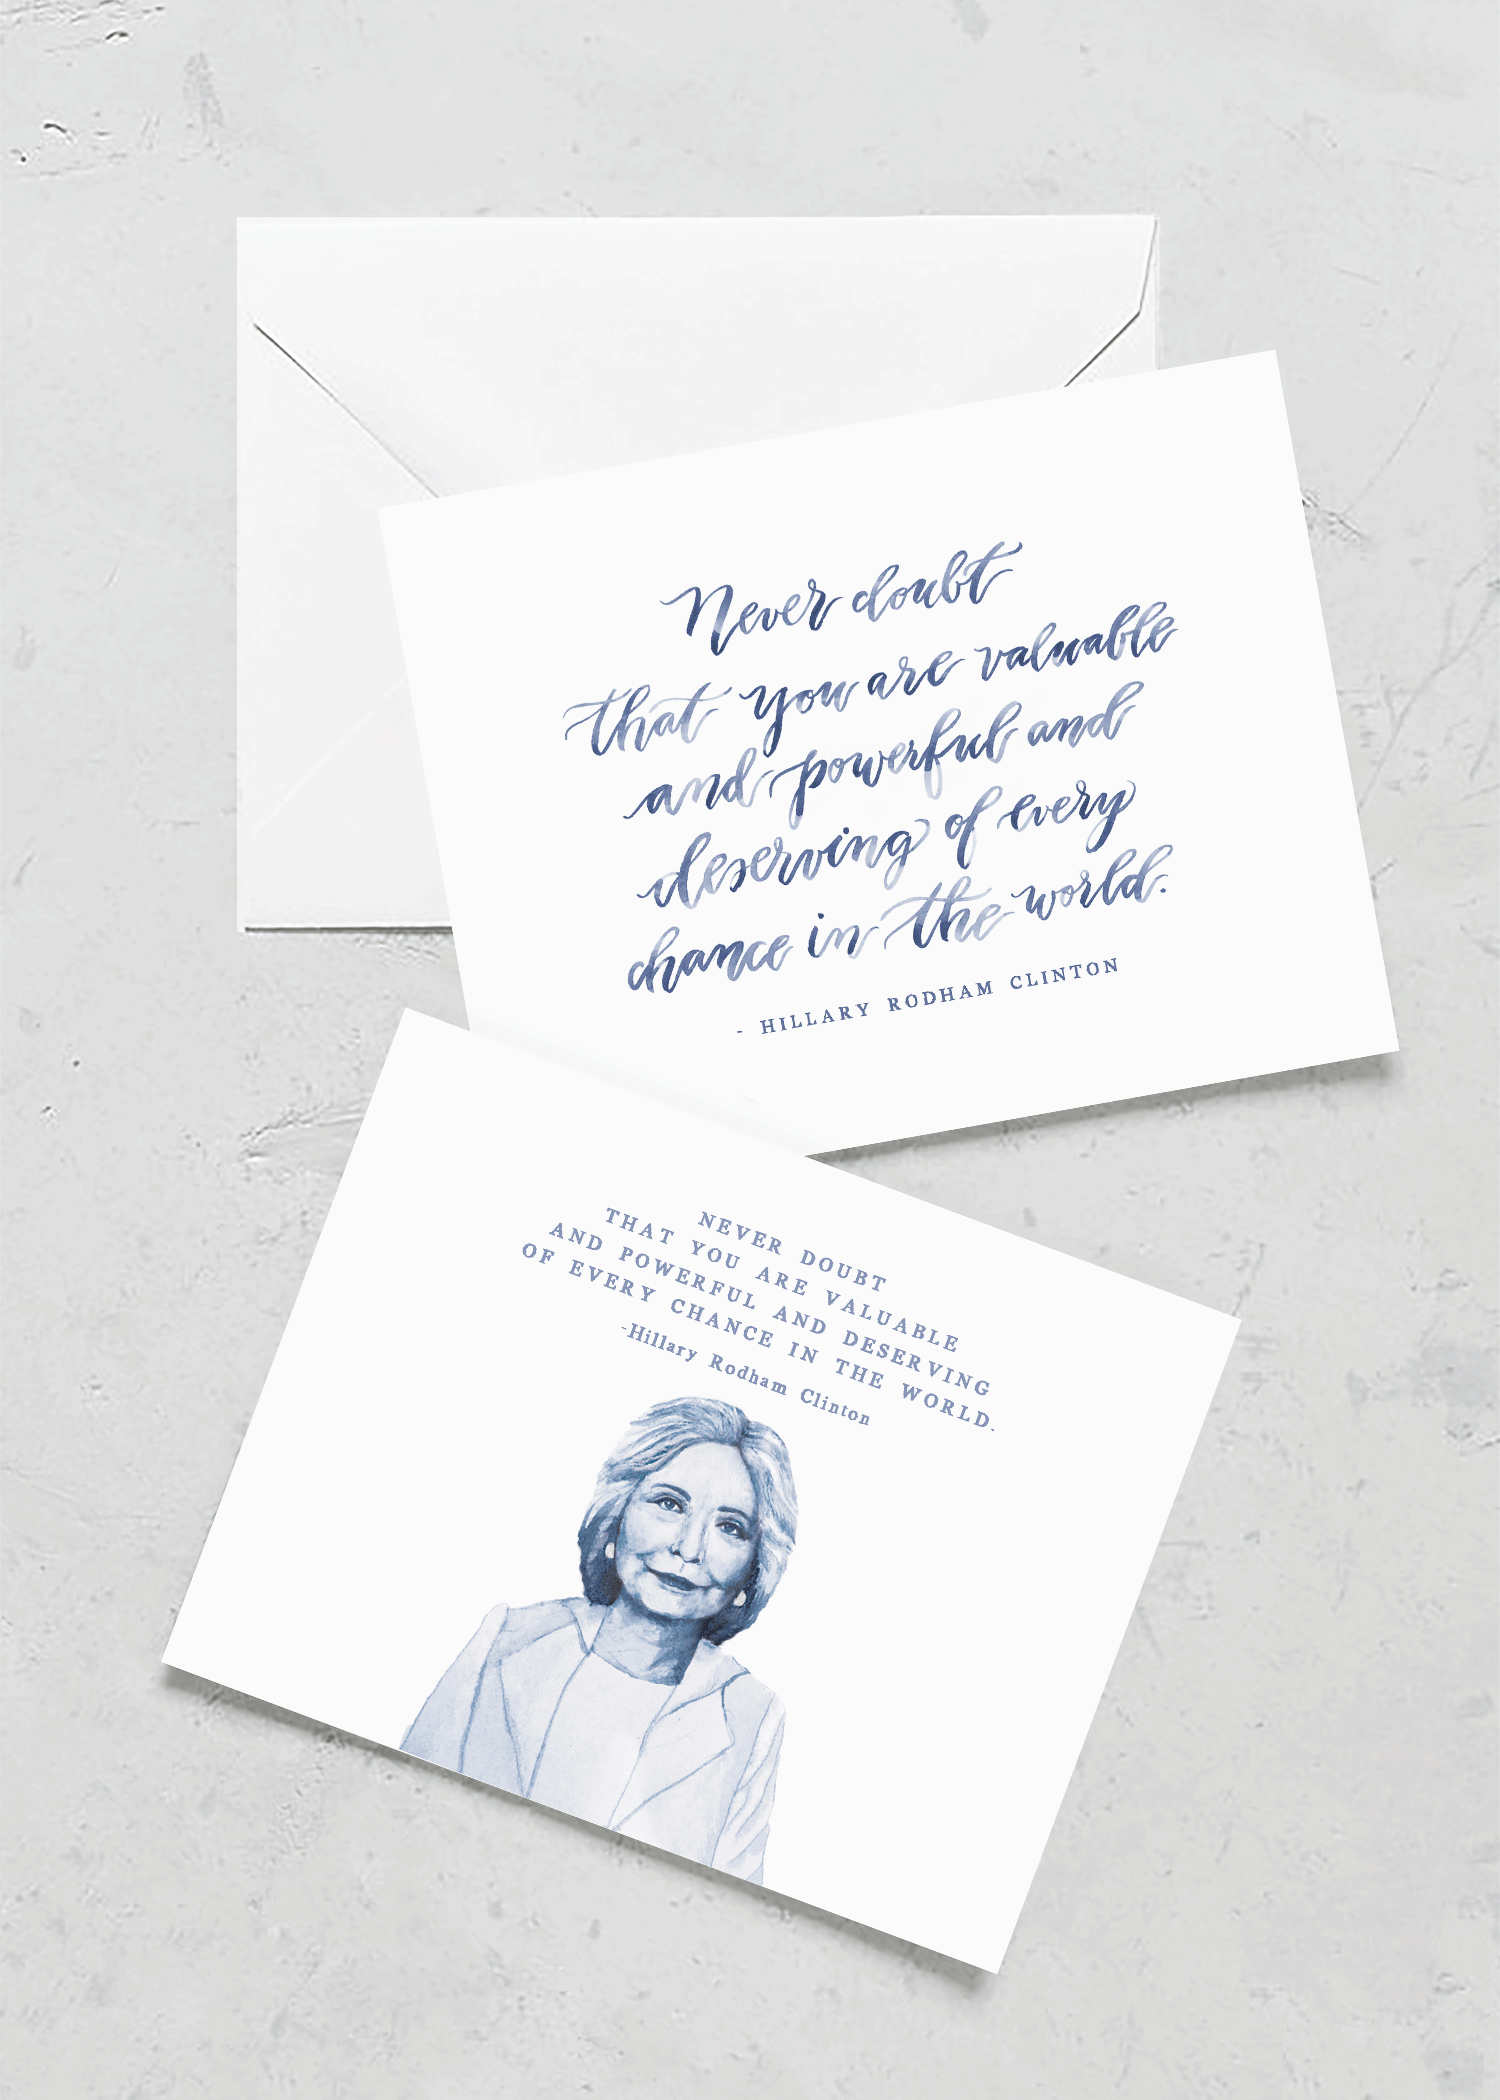 Never doubt
that you are valuable
and powerful and
deserving of every
chance in the world.
- HILLARY RODHAM CLINTON
NEVER DOUBT
THAT YOU ARE VALUABLE
AND POWERFUL AND DESERVING
OF EVERY CHANCE IN THE WORLD.
-Hillary Rodham Clinton